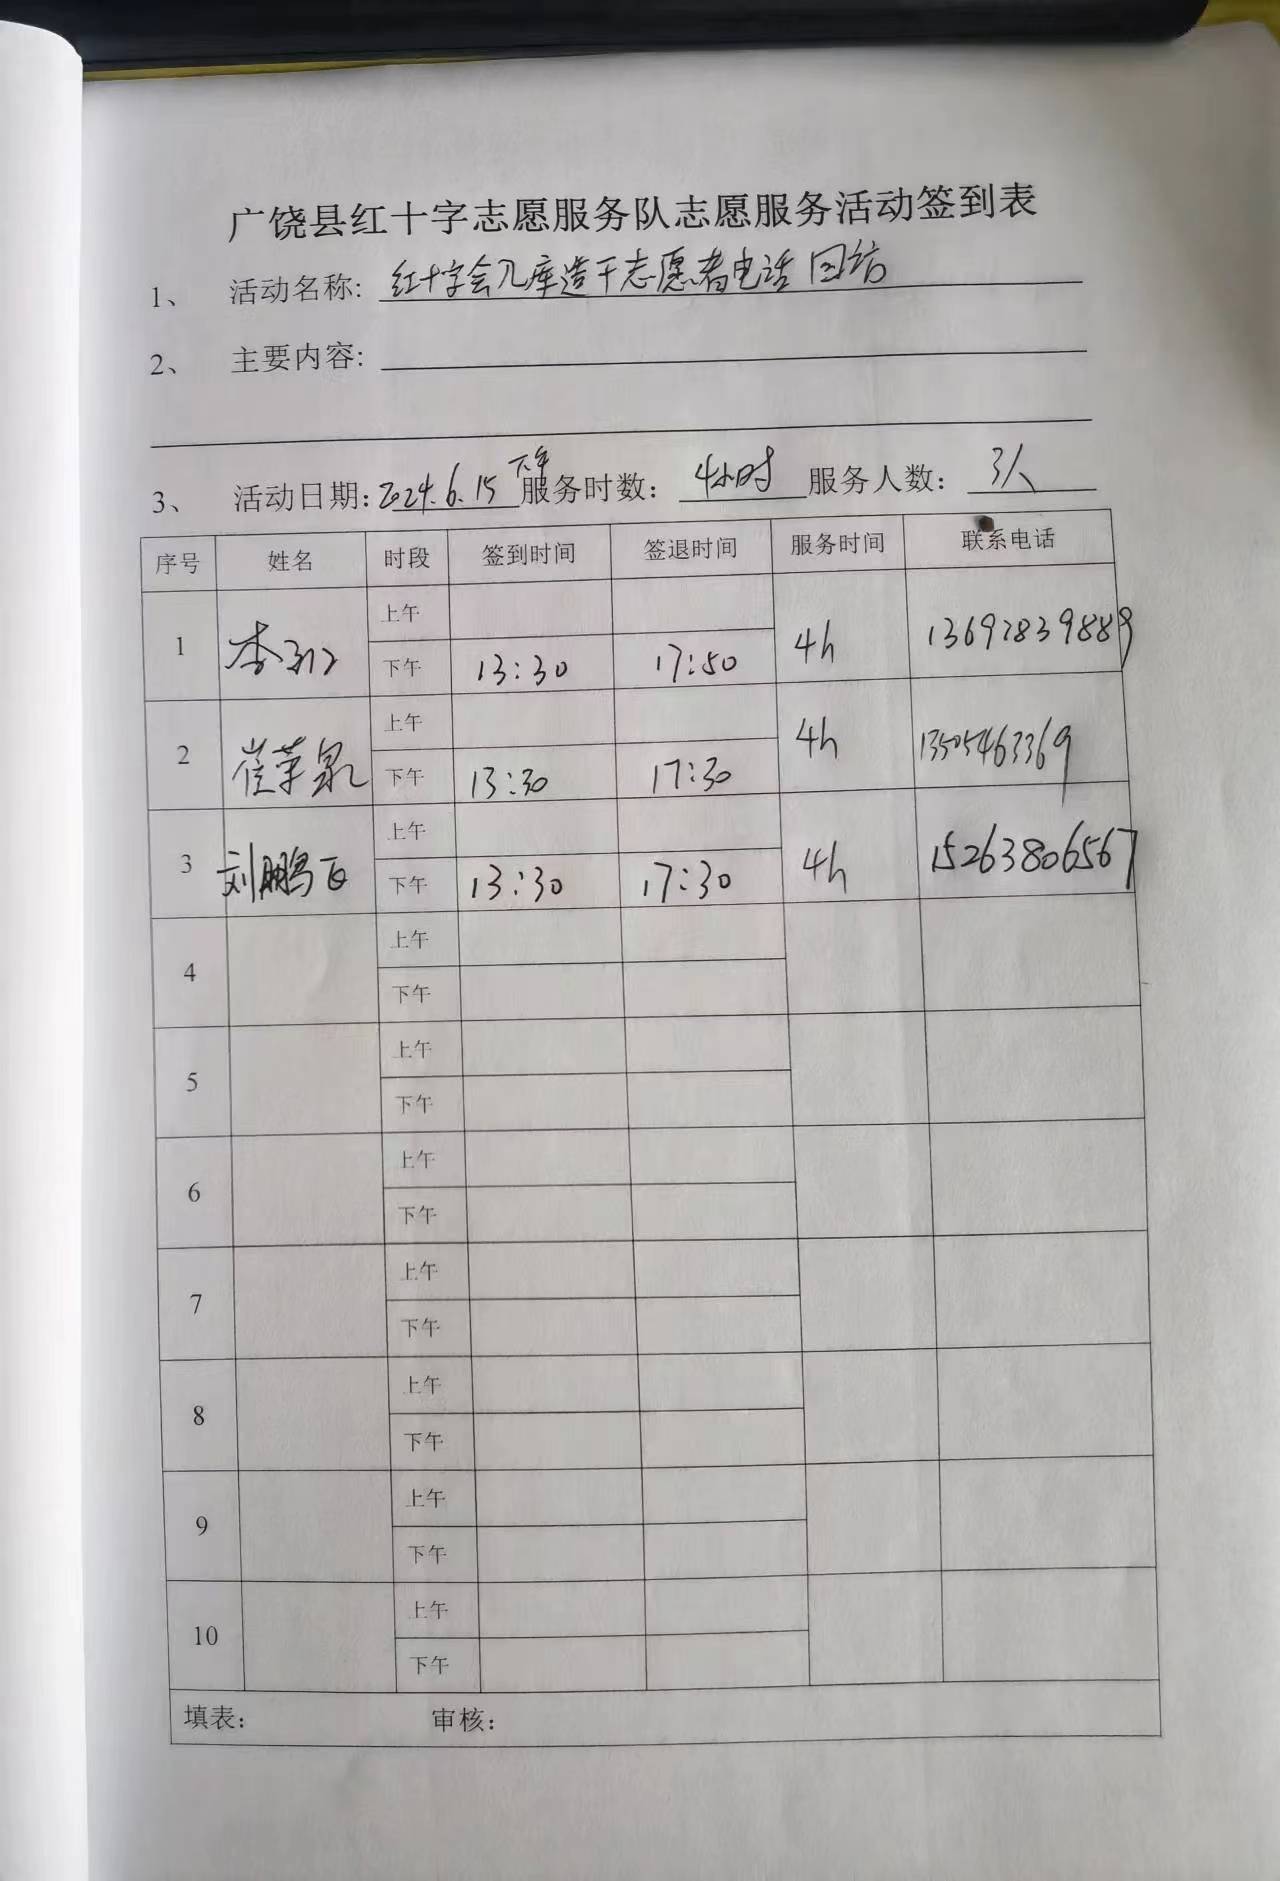 广饶县红十字志愿服务队志愿服务活动签到表
1、 活动名称: 红十字会入库造干志愿者电话回访
2、 主要内容:
3、 活动日期: 2024.6.15下午 服务时数: 4小时 服务人数: 3人
序号 姓名 时段 签到时间 签退时间 服务时间 联系电话
1 李 上午 4h 13692839889
下午 13:30 17:50
2 崔荣泉 上午 4h 13505463369
下午 13:30 17:30
3 刘鹏飞 上午 4h 15263806567
下午 13:30 17:30
4 上午
下午
5 上午
下午
6 上午
下午
7 上午
下午
8 上午
下午
9 上午
下午
10 上午
下午
填表: 审核: